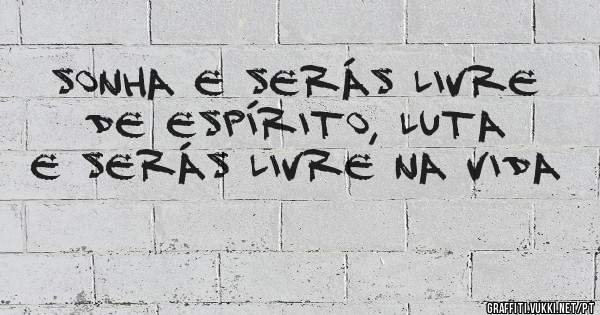 SONHA E SERÁS LIVRE
DE ESPÍRITO, LUTA
E SERÁS LIVRE NA VIDA
GRAFFITI.VUKKI.NET/PT